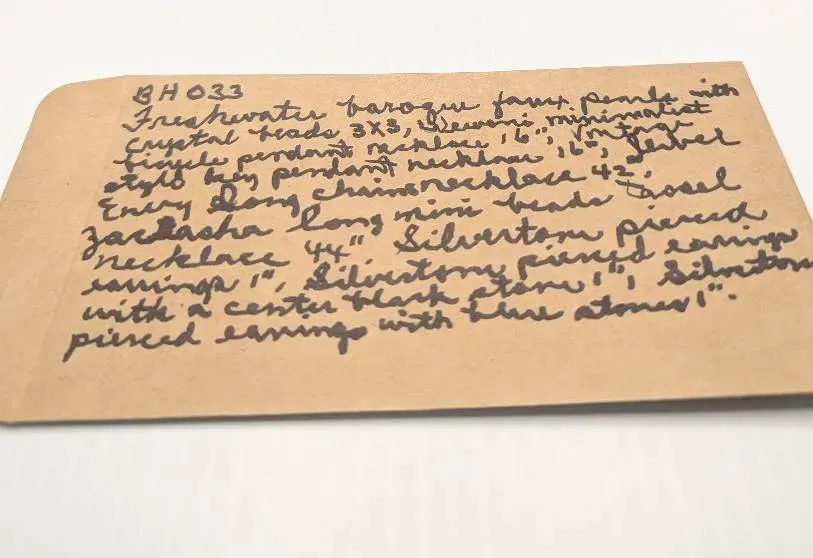 BH033
Freshwater baroque faux pearls with
crystal beads 3X3, minimalist
bicycle pendant necklace 16", Vintage
style key pendant necklace 16", Jewel
Envy long chain necklace 42",
long mini beads Tassel
necklace 44" Silvertone pierced
earrings 1", Silvertone pierced earrings
with a center black stone 1", Silvertone
pierced earrings with blue stones 1".